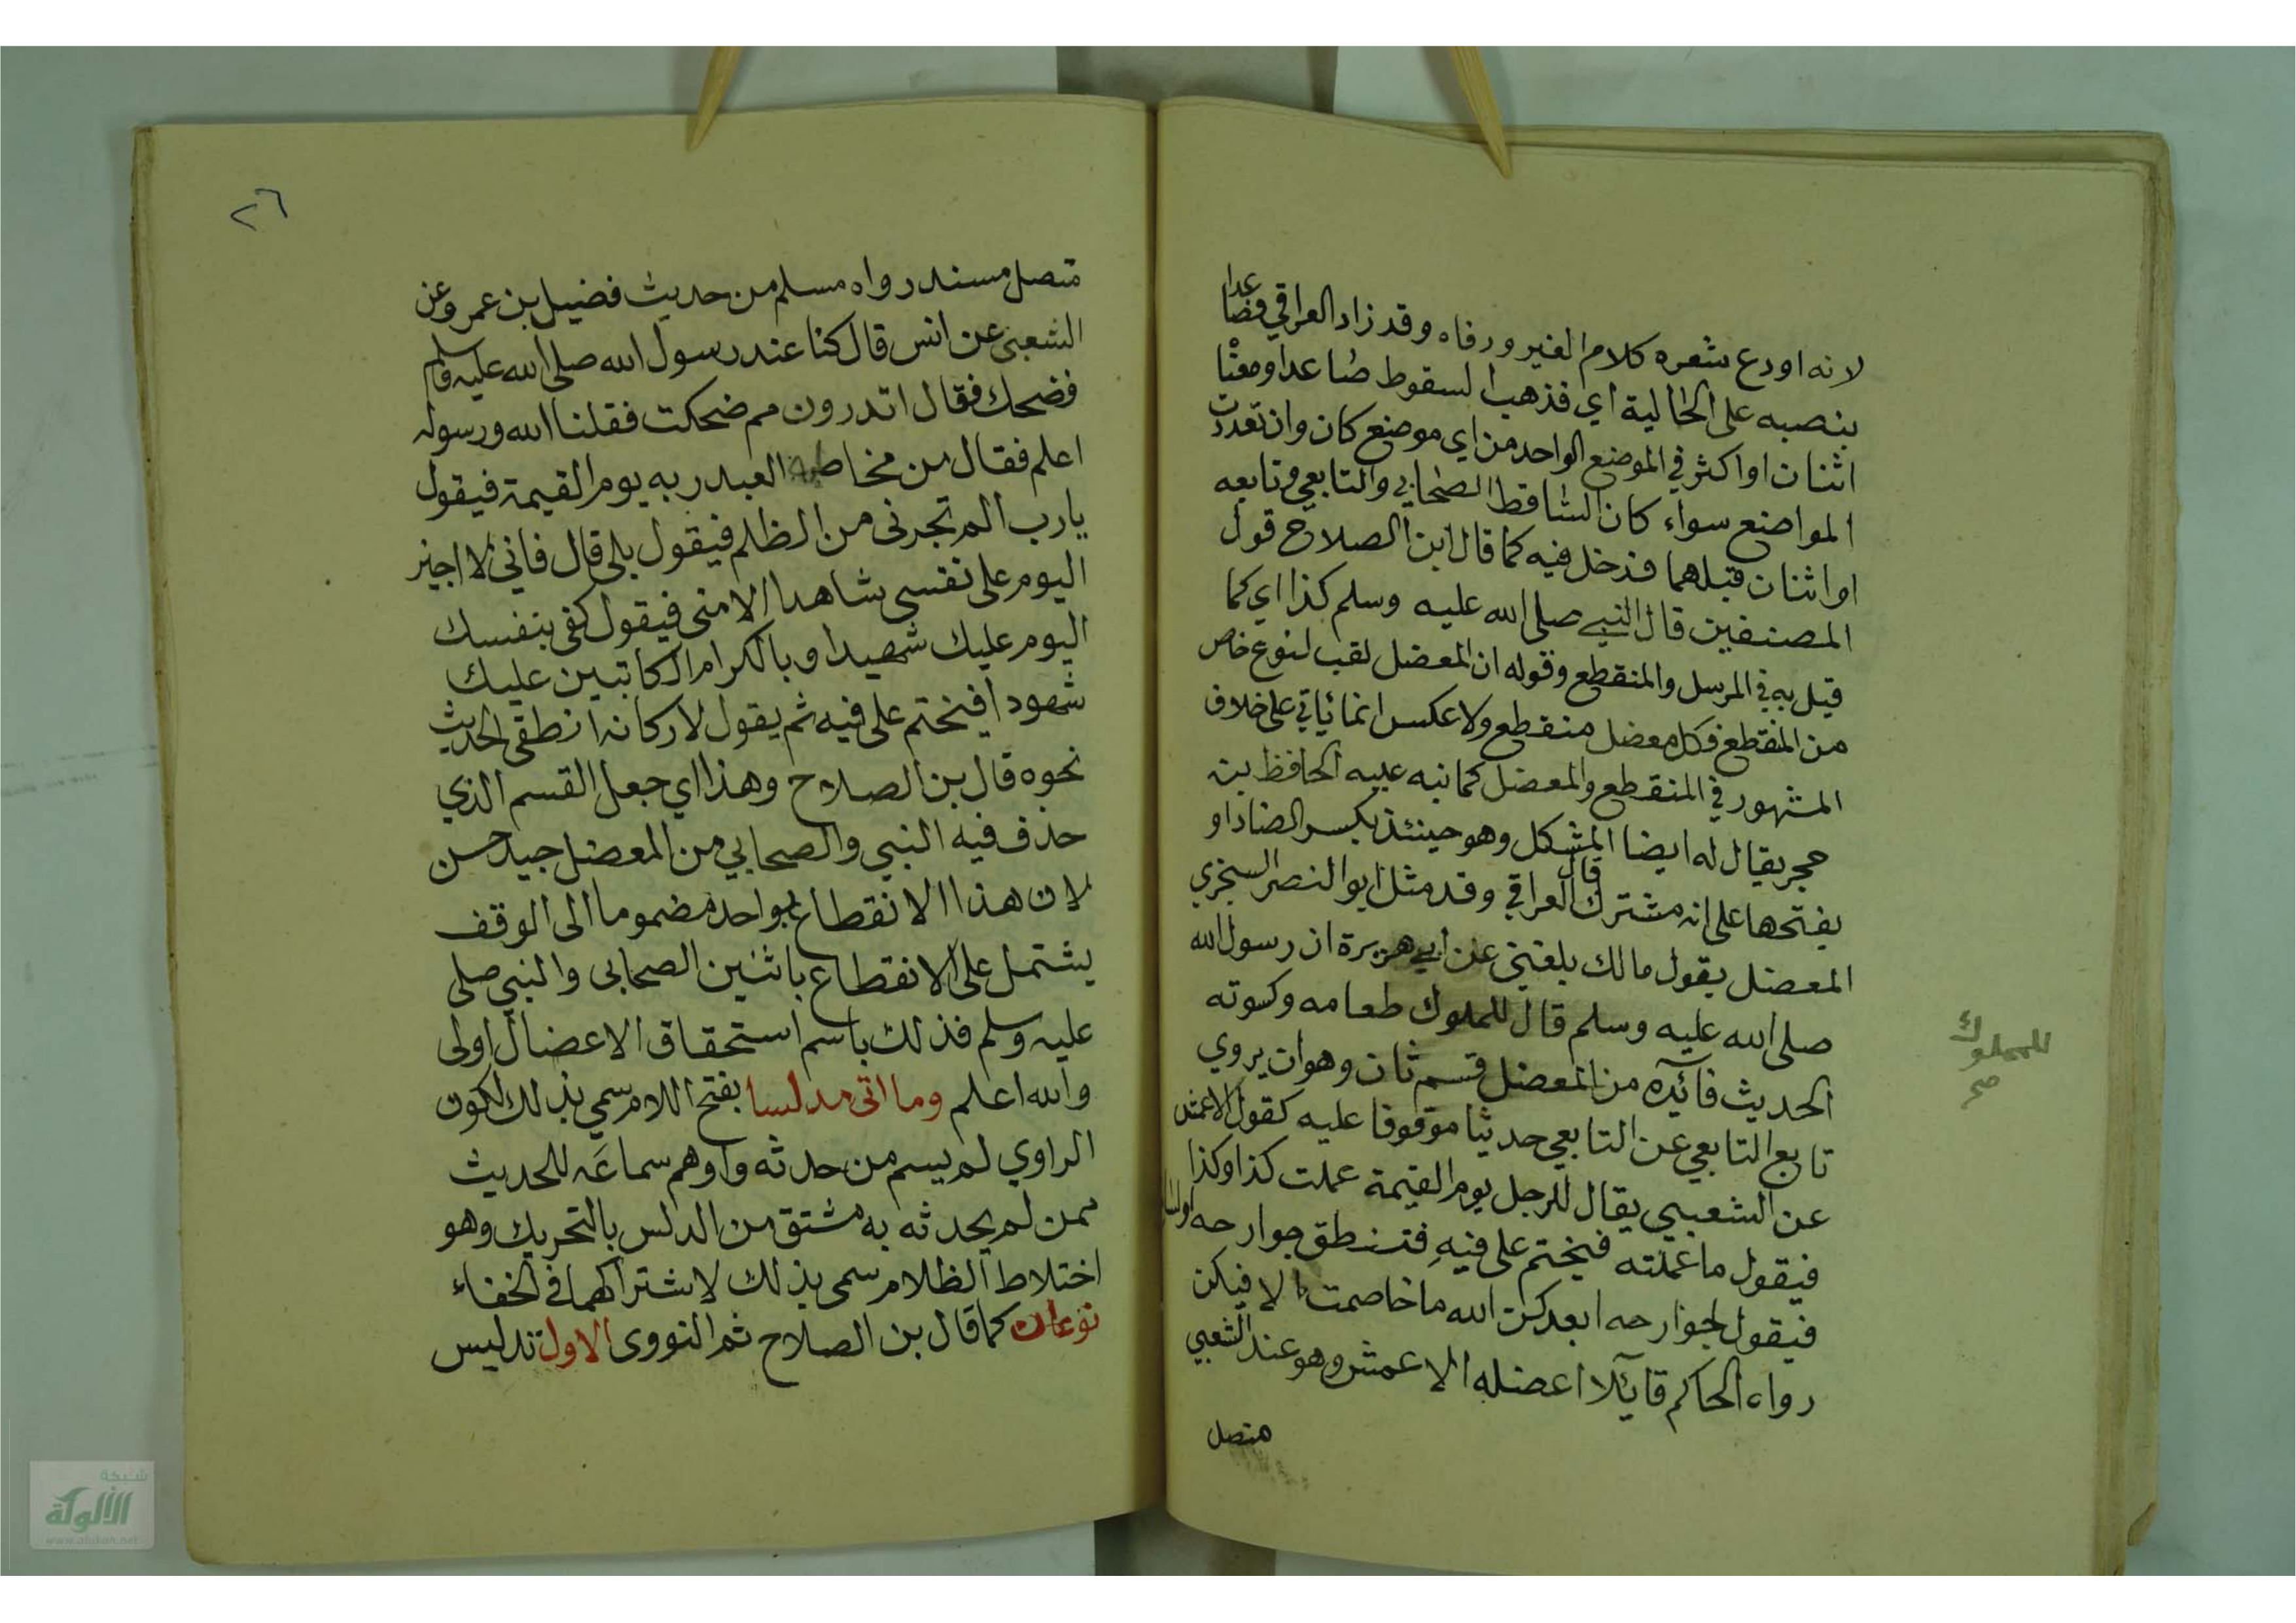 لانه اودع شعره كلام الغير ورفاه وقد زاد العراقي فصاعدا
بنصبه على الحالية اي فذهب السقوط صاعدا ومعنا
اثنان او اكثر في الموضع الواحد من اي موضع كان وان تعددت
المواضع سواء كان الساقط الصحابي والتابعي وتابعه
او اثنان قبلهما فدخل فيه كما قال ابن الصلاح قول
المصنفين قال النبي صلى الله عليه وسلم كذا اي كما
قيل به في المرسل والمنقطع وقوله ان المعضل لقب لنوع خاص
من المنقطع فكل معضل منقطع ولا عكس انما ياتي على خلاف
المشهور في المنقطع والمعضل كما نبه عليه الحافظ بن
حجر يقال له ايضا المشكل وهو حينئذ بكسر الضاد او
بفتحها على انه مشترك قال العراقي وقد مثل ابوا النصر السجزي
المعضل بقول مالك بلغني عن ابي هريرة ان رسول الله
صلى الله عليه وسلم قال للملوك طعامه وكسوته
الحديث فائدة من المعضل قسم ثان وهو ان يروي
تابع التابعي عن التابعي حديثا موقوفا عليه كقول الاعمش
عن الشعبي يقال للرجل يوم القيمة عملت كذا وكذا
فيقول ما عملته فيختم على فيه فتنطق جوارحه
فيقول لجوارحه ابعدكن الله ما خاصمت الا فيكن
رواه الحاكم قائلا اعضله الاعمش وهو عند الشعبي
متصل
للمملوك
صح
٢٦
متصل مسند رواه مسلم من حديث فضيل بن عمرو عن
الشعبى عن انس قال كنا عند رسول الله صلى الله عليه وسلم
فضحك فقال اتدرون مم ضحكت فقلنا الله ورسوله
اعلم فقال من مخاطبة العبد ربه يوم القيمة فيقول
يارب الم تجرنى من الظلم فيقول بلى قال فاني لا اجيز
اليوم على نفسي شاهدا الا منى فيقول كفى بنفسك
اليوم عليك شهيدا وبالكرام الكاتبين عليك
شهودا فيختم على فيه ثم يقول لاركانه انطقى الحديث
نحوه قال بن الصلاح وهذا اي جعل القسم الذي
حذف فيه النبي والصحابي من المعضل جيد حسن
لان هذا الانقطاع بواحد مضموما الى الوقف
يشتمل على الانقطاع باثنين الصحابى والنبي صلى
عليه وسلم فذلك باسم استحقاق الاعضال اولى
والله اعلم وما اتى مدلسا بفتح اللام سمي بذلك لكون
الراوي لم يسم من حدثه واوهم سماعه للحديث
ممن لم يحدثه به مشتق من الدلس بالتحريك وهو
اختلاط الظلام سمى بذلك لاشتراكهما في الخفاء
نوعان كما قال بن الصلاح ثم النووى الاول تدليس
شبكة
الألوكة
www.alukah.net